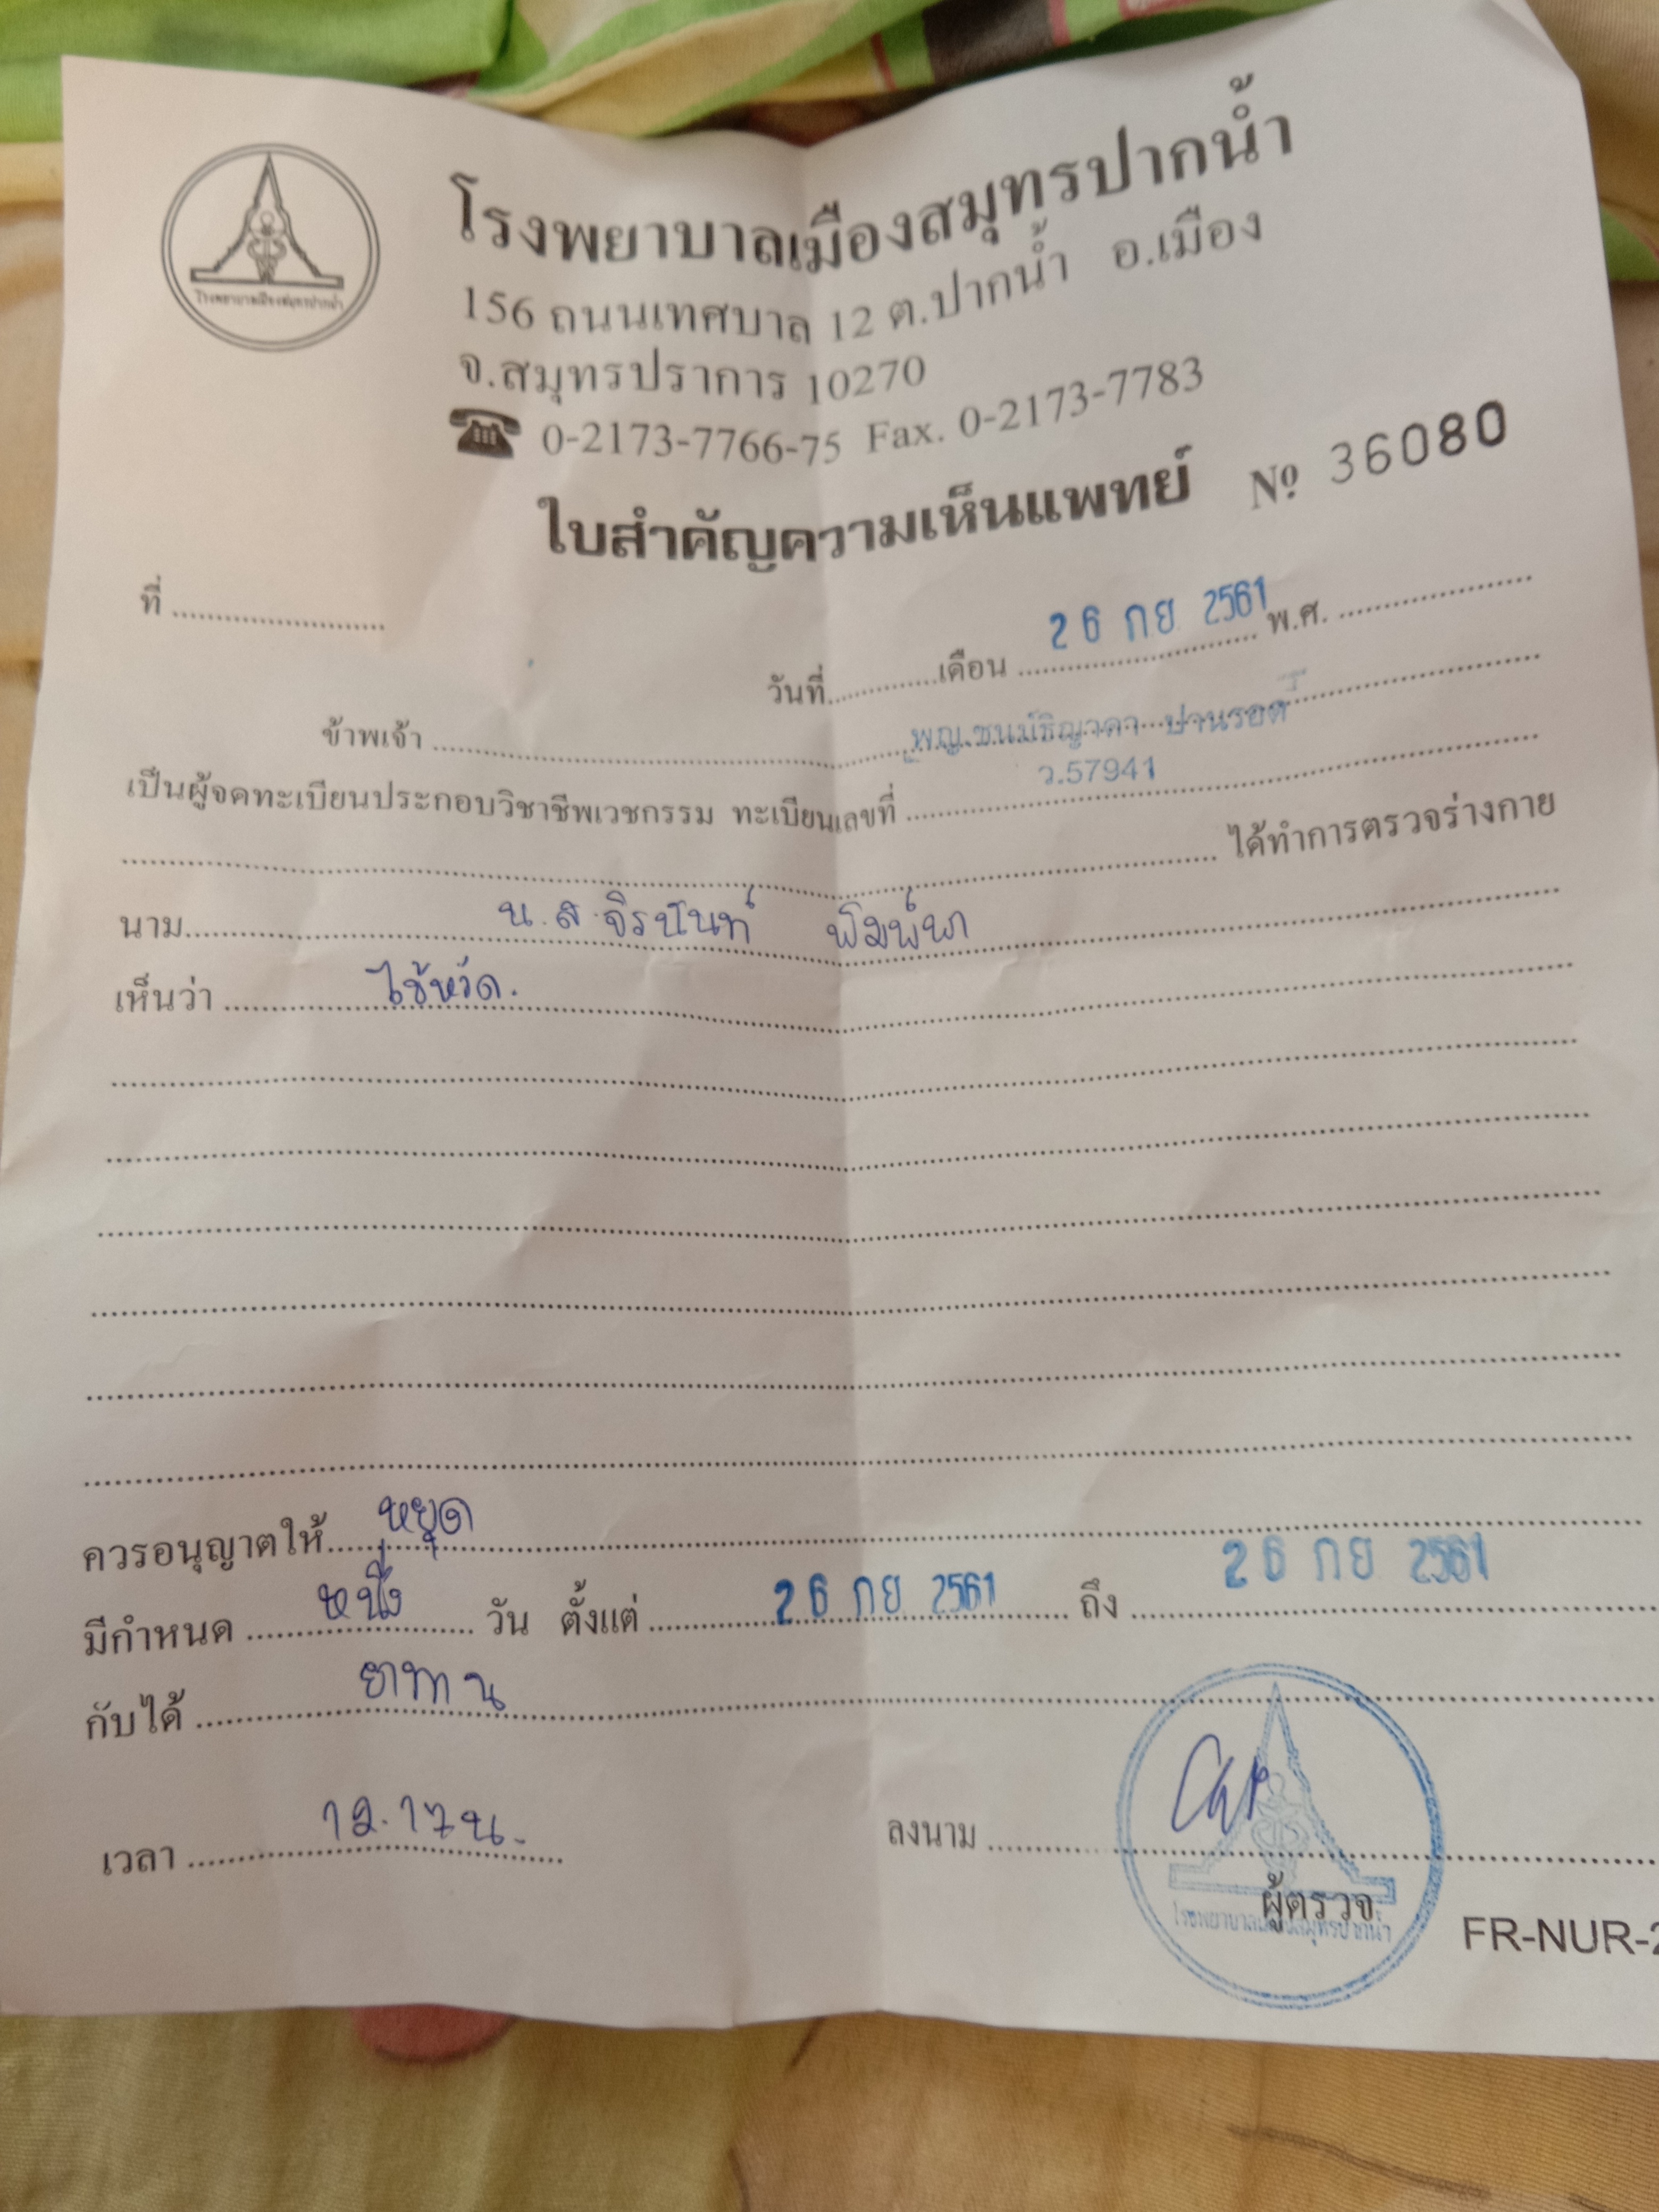 โรงพยาบาลเมืองสมุทรปากน้ำ
โรงพยาบาลเมืองสมุทรปากน้ำ
156 ถนนเทศบาล 12 ต.ปากน้ำ อ.เมือง
จ.สมุทรปราการ 10270
0-2173-7766-75 Fax. 0-2173-7783
ใบสำคัญความเห็นแพทย์ № 36080
ที่
26 กย 2561
วันที่ เดือน พ.ศ.
ข้าพเจ้า พญ.ชนม์ธิญาดา ปานรอด
ว.57941
เป็นผู้จดทะเบียนประกอบวิชาชีพเวชกรรม ทะเบียนเลขที่
ได้ทำการตรวจร่างกาย
นาม น.ส.จิรนันท์ พิมพ์พา
เห็นว่า ไข้หวัด.
ควรอนุญาตให้ หยุด
มีกำหนด หนึ่ง วัน ตั้งแต่ 26 กย 2561 ถึง 26 กย 2561
กับได้ ยาทาน
เวลา 12.17น. ลงนาม
ผู้ตรวจ
โรงพยาบาลเมืองสมุทรปากน้ำ
FR-NUR-2